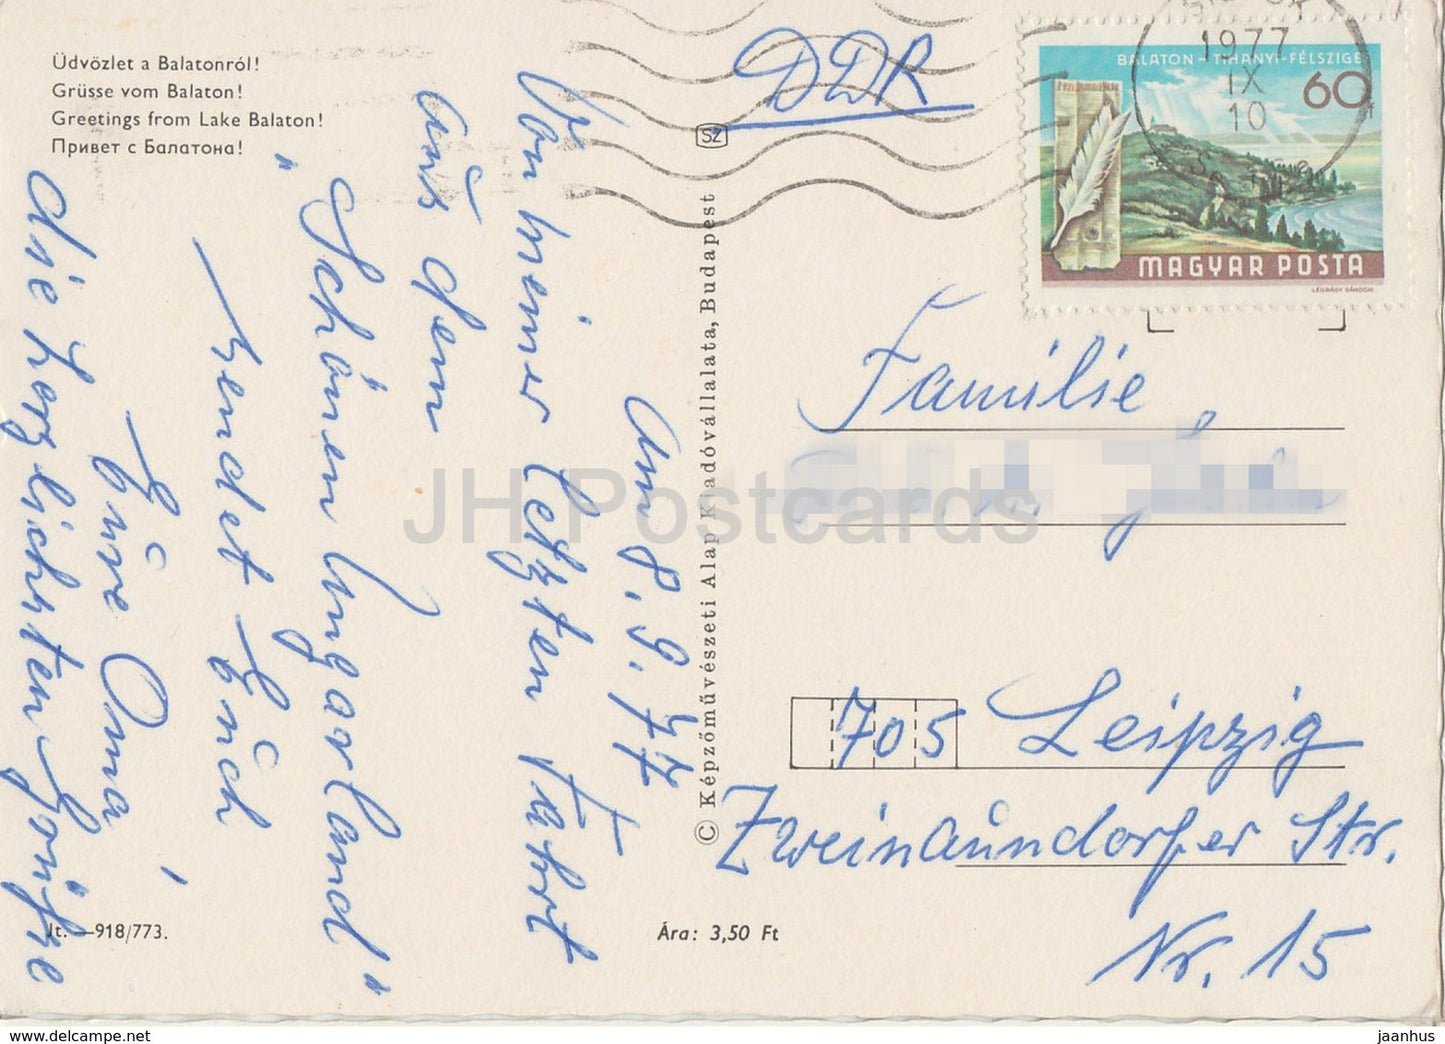 Üdvözlet a Balatonról!
Grüsse vom Balaton!
Greetings from Lake Balaton!
Привет с Балатона!
Am 8. 9. 77
Von meiner letzten Fahrt
aus dem
"Schönen Ungarland"
sendet Euch
die herzlichsten Grüße
Eure Oma
Jt. —918/773.
Ára: 3,50 Ft
© Képzőművészeti Alap Kiadóvállalata, Budapest
SZ
DDR
1977
IX
10
BALATON - TIHANYI-FÉLSZIGET
60f
MAGYAR POSTA
LÉGRÁDY SÁNDOR
Familie
705 Leipzig
Zweinaundorfer Str.
Nr. 15
JH Postcards
www.delcampe.net
jaanhus